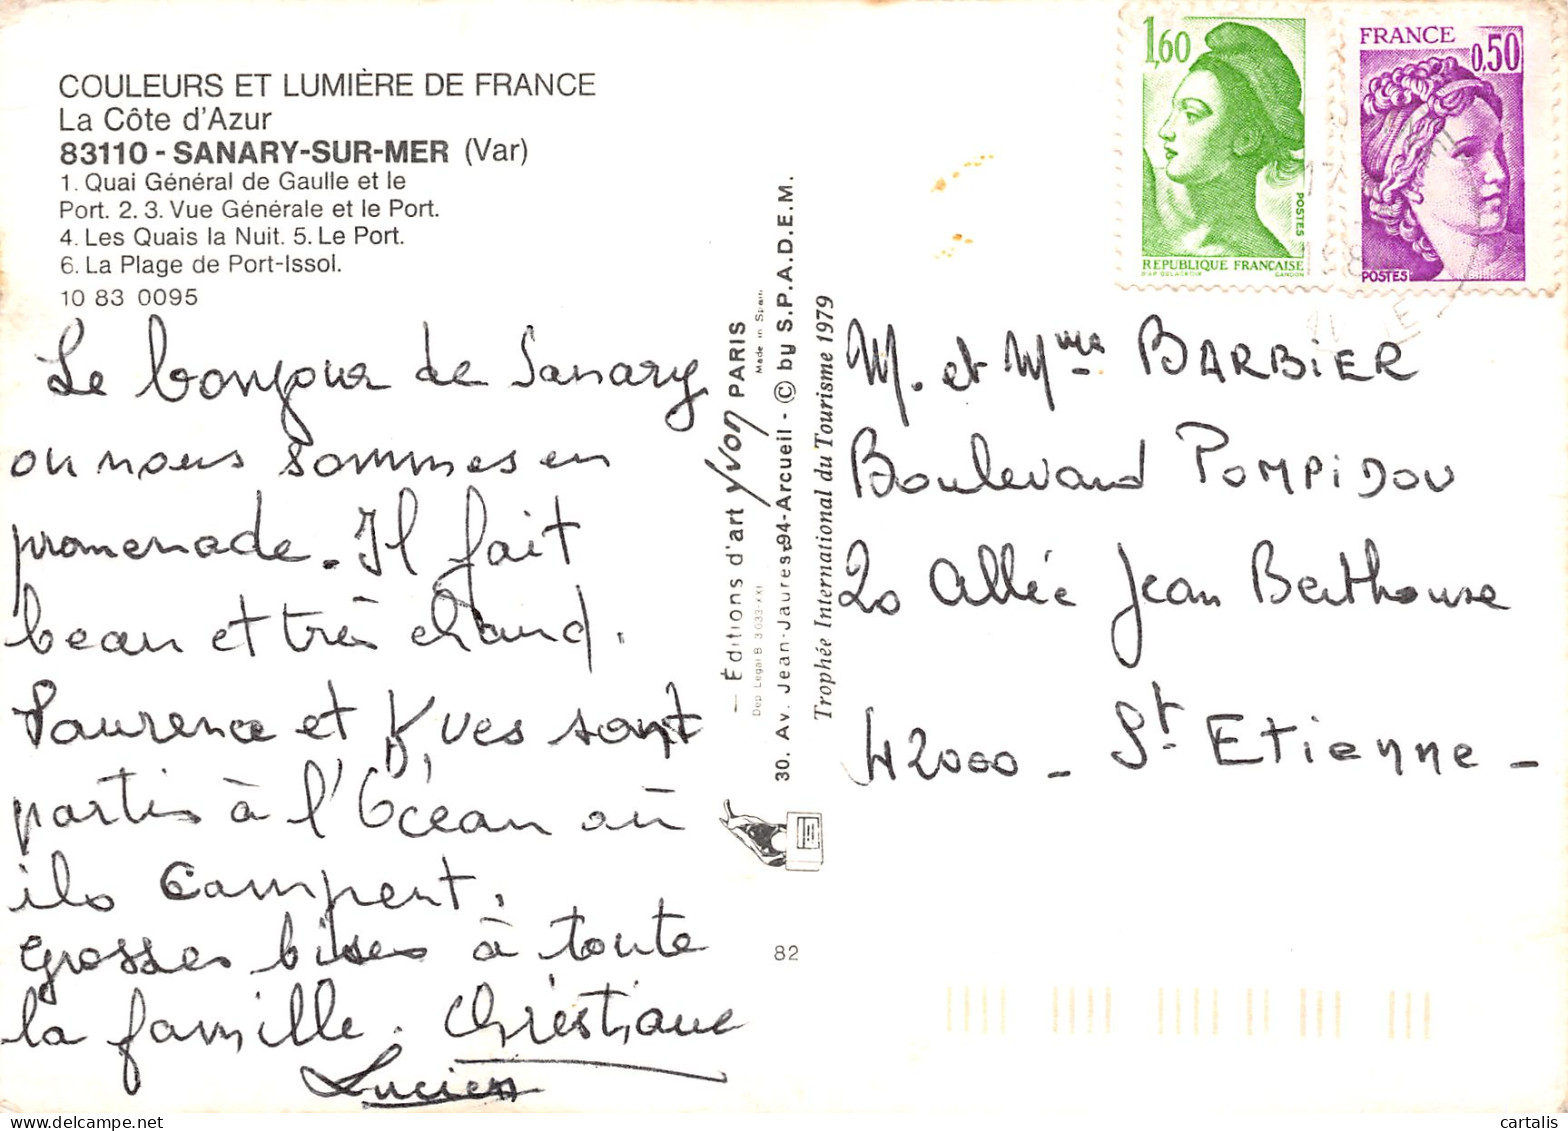 COULEURS ET LUMIÈRE DE FRANCE
La Côte d'Azur
83110 - SANARY-SUR-MER (Var)
1. Quai Général de Gaulle et le
Port. 2. 3. Vue Générale et le Port.
4. Les Quais la Nuit. 5. Le Port.
6. La Plage de Port-Issol.
10 83 0095
Le bonjour de Sanary
ou nous sommes en
promenade. Il fait
beau et très chaud.
Laurence et Yves sont
partis à l'Océan où
ils campent.
Grosses bises à toute
la famille. Christiane
Lucien
— Éditions d'art yvon PARIS
Dep Legal B 3 033-XXI
Made in Spain
30. Av. Jean-Jaures-94-Arcueil - © by S.P.A.D.E.M.
Trophée International du Tourisme 1979
82
1,60
POSTES
REPUBLIQUE FRANCAISE
D'AP DELACROIX GANDON
FRANCE
0,50
POSTES
M. et Mme BARBIER
Boulevard POMPIDOU
20 allée Jean Berthouse
42000 - St. Etienne -
cartalis